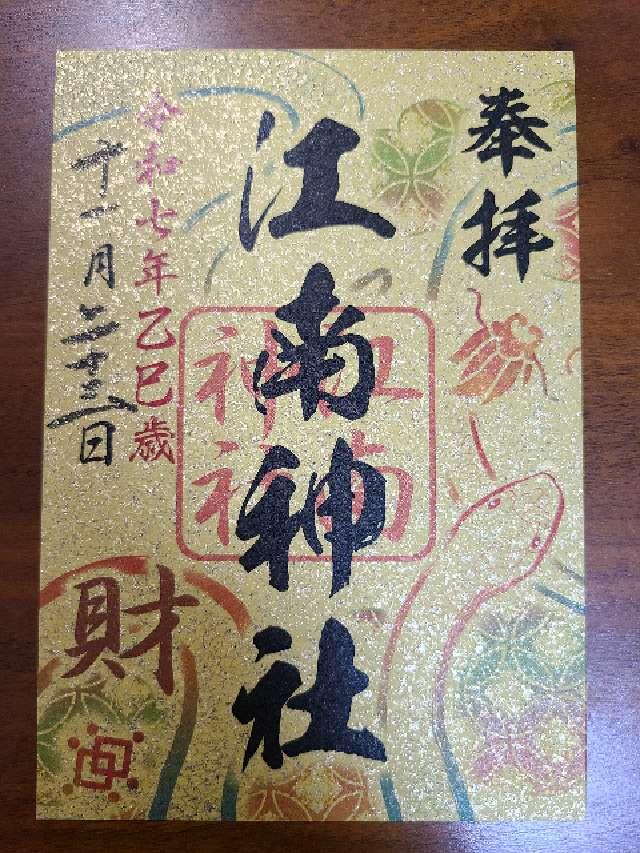 奉拝
江南神社
江南神社
令和七年乙巳歳
十一月二十三日
財